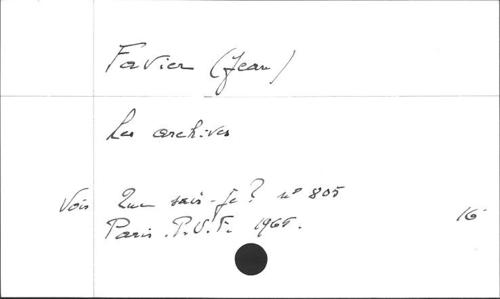 Favier (Jean)
Les archives
Voir Que sais-je? n° 805
Paris. P.U.F. 1965. 16